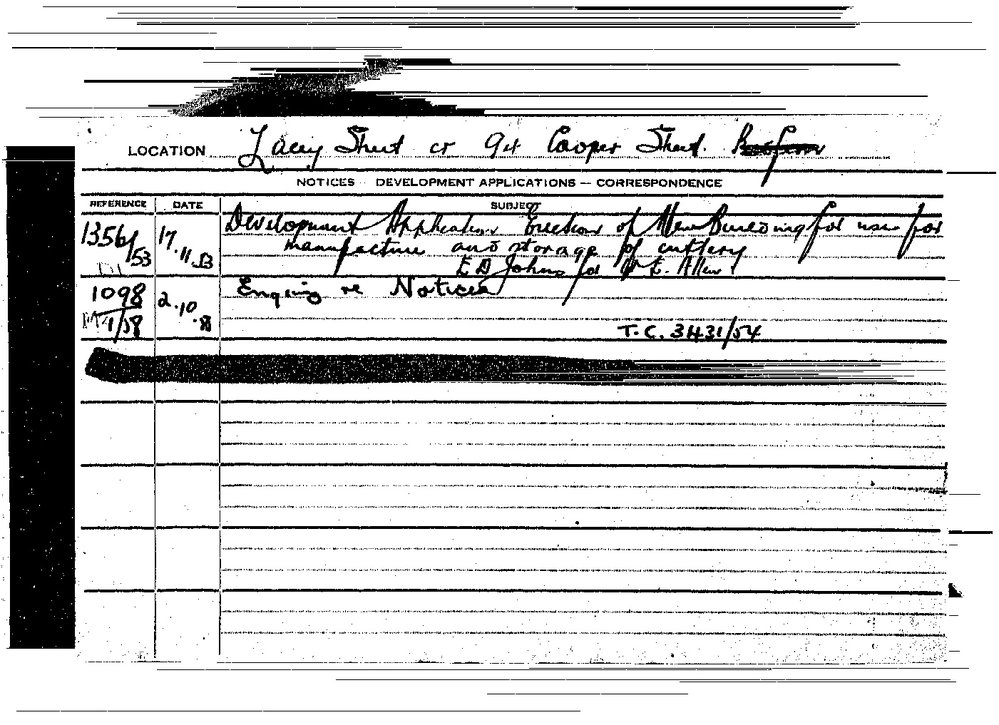 LOCATION Lacey Street cr 94 Cooper Street.
NOTICES DEVELOPMENT APPLICATIONS — CORRESPONDENCE
REFERENCE DATE SUBJECT
1356/53 17.11.53 Development Application Erection of New Building for use for
manufacture and storage of cutlery
E D Johns for E. Allen
1098 2.10.58 Enquiry re Notices
1/58 T.C. 3431/54